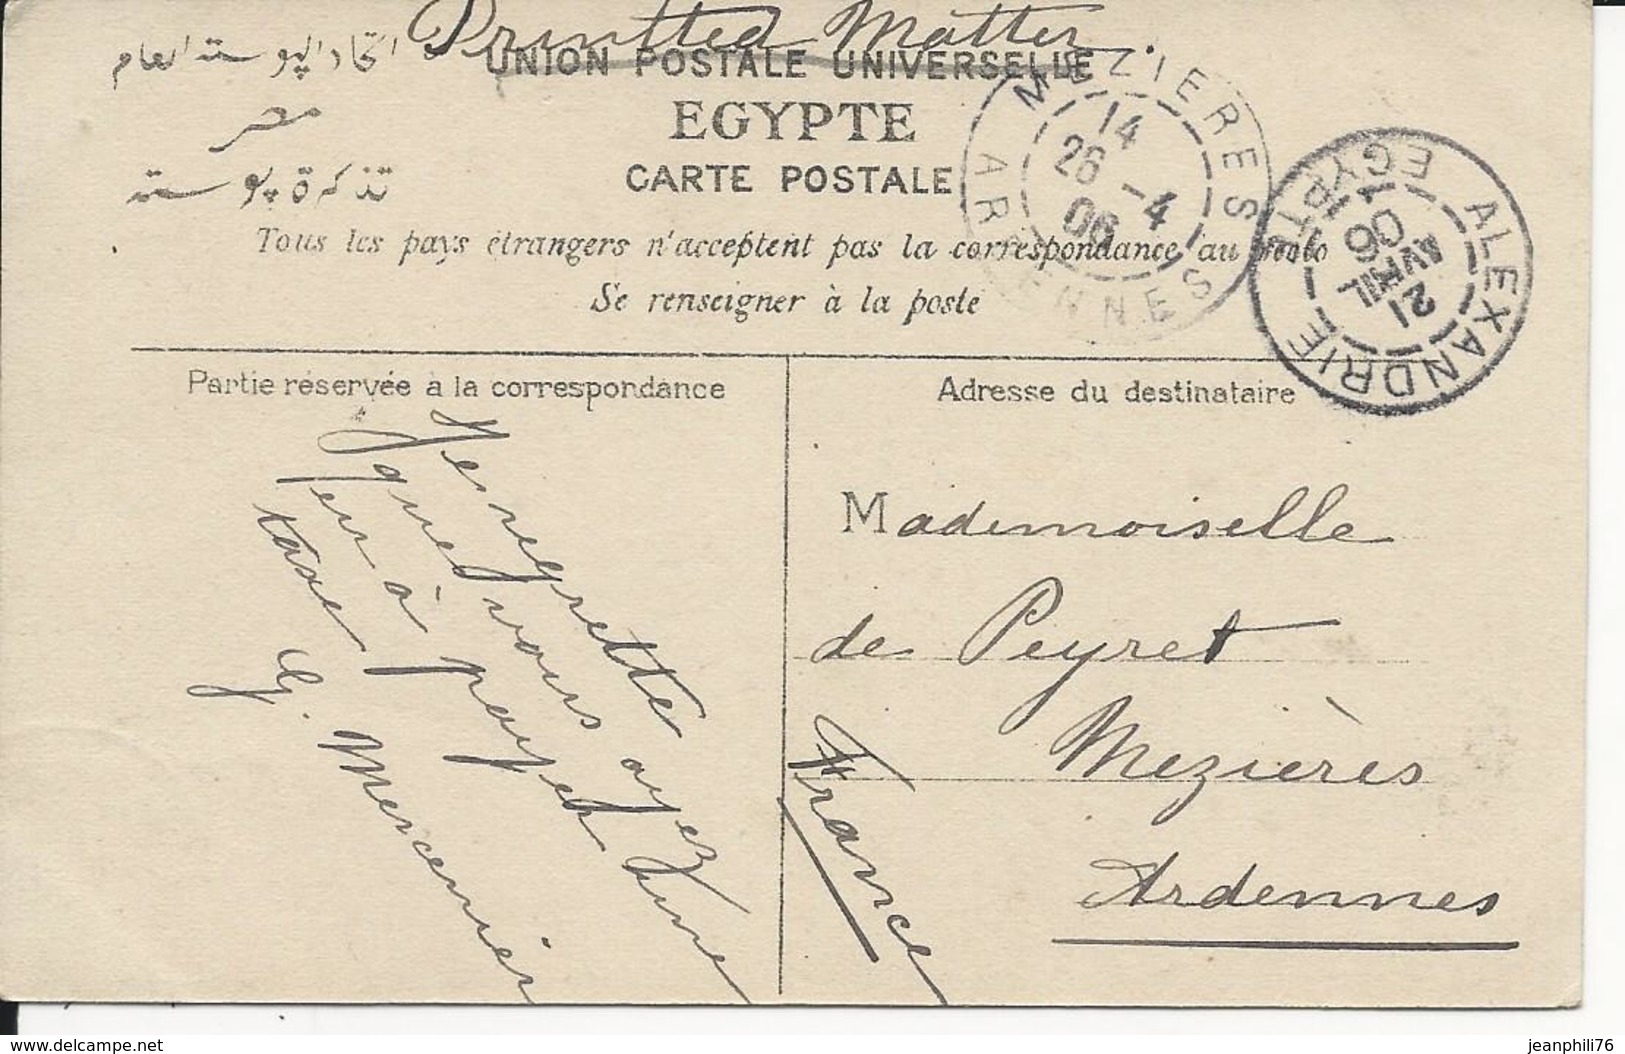 Printted Matter.
اتحاد البوسته العام
UNION POSTALE UNIVERSELLE
مصر
EGYPTE
تذكرة بوسته
CARTE POSTALE
Tous les pays étrangers n'acceptent pas la correspondance au recto
Se renseigner à la poste
MEZIERES
14
26 -4
06
ARDENNES
ALEXANDRIE
21
AVRIL
06
EGYPTE
Partie réservée à la correspondance
Je regrette
que vous ayez
eu à payer une
taxe
G. Mercenier
Adresse du destinataire
Mademoiselle
de Peyret
Mezières
Ardennes
France
delcampe.net
jeanphili76